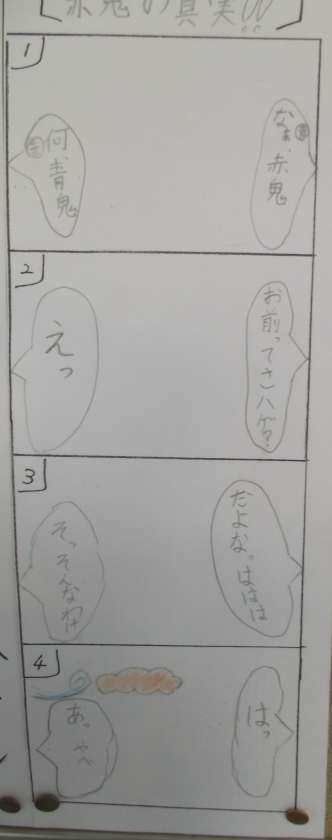 [赤鬼の真実!!]
1
なぁ、赤鬼
何、青鬼
2
お前ってさハゲ?
えっ
3
だよな。ははは
そっそんなわけ
4
はっ
あっ やべ